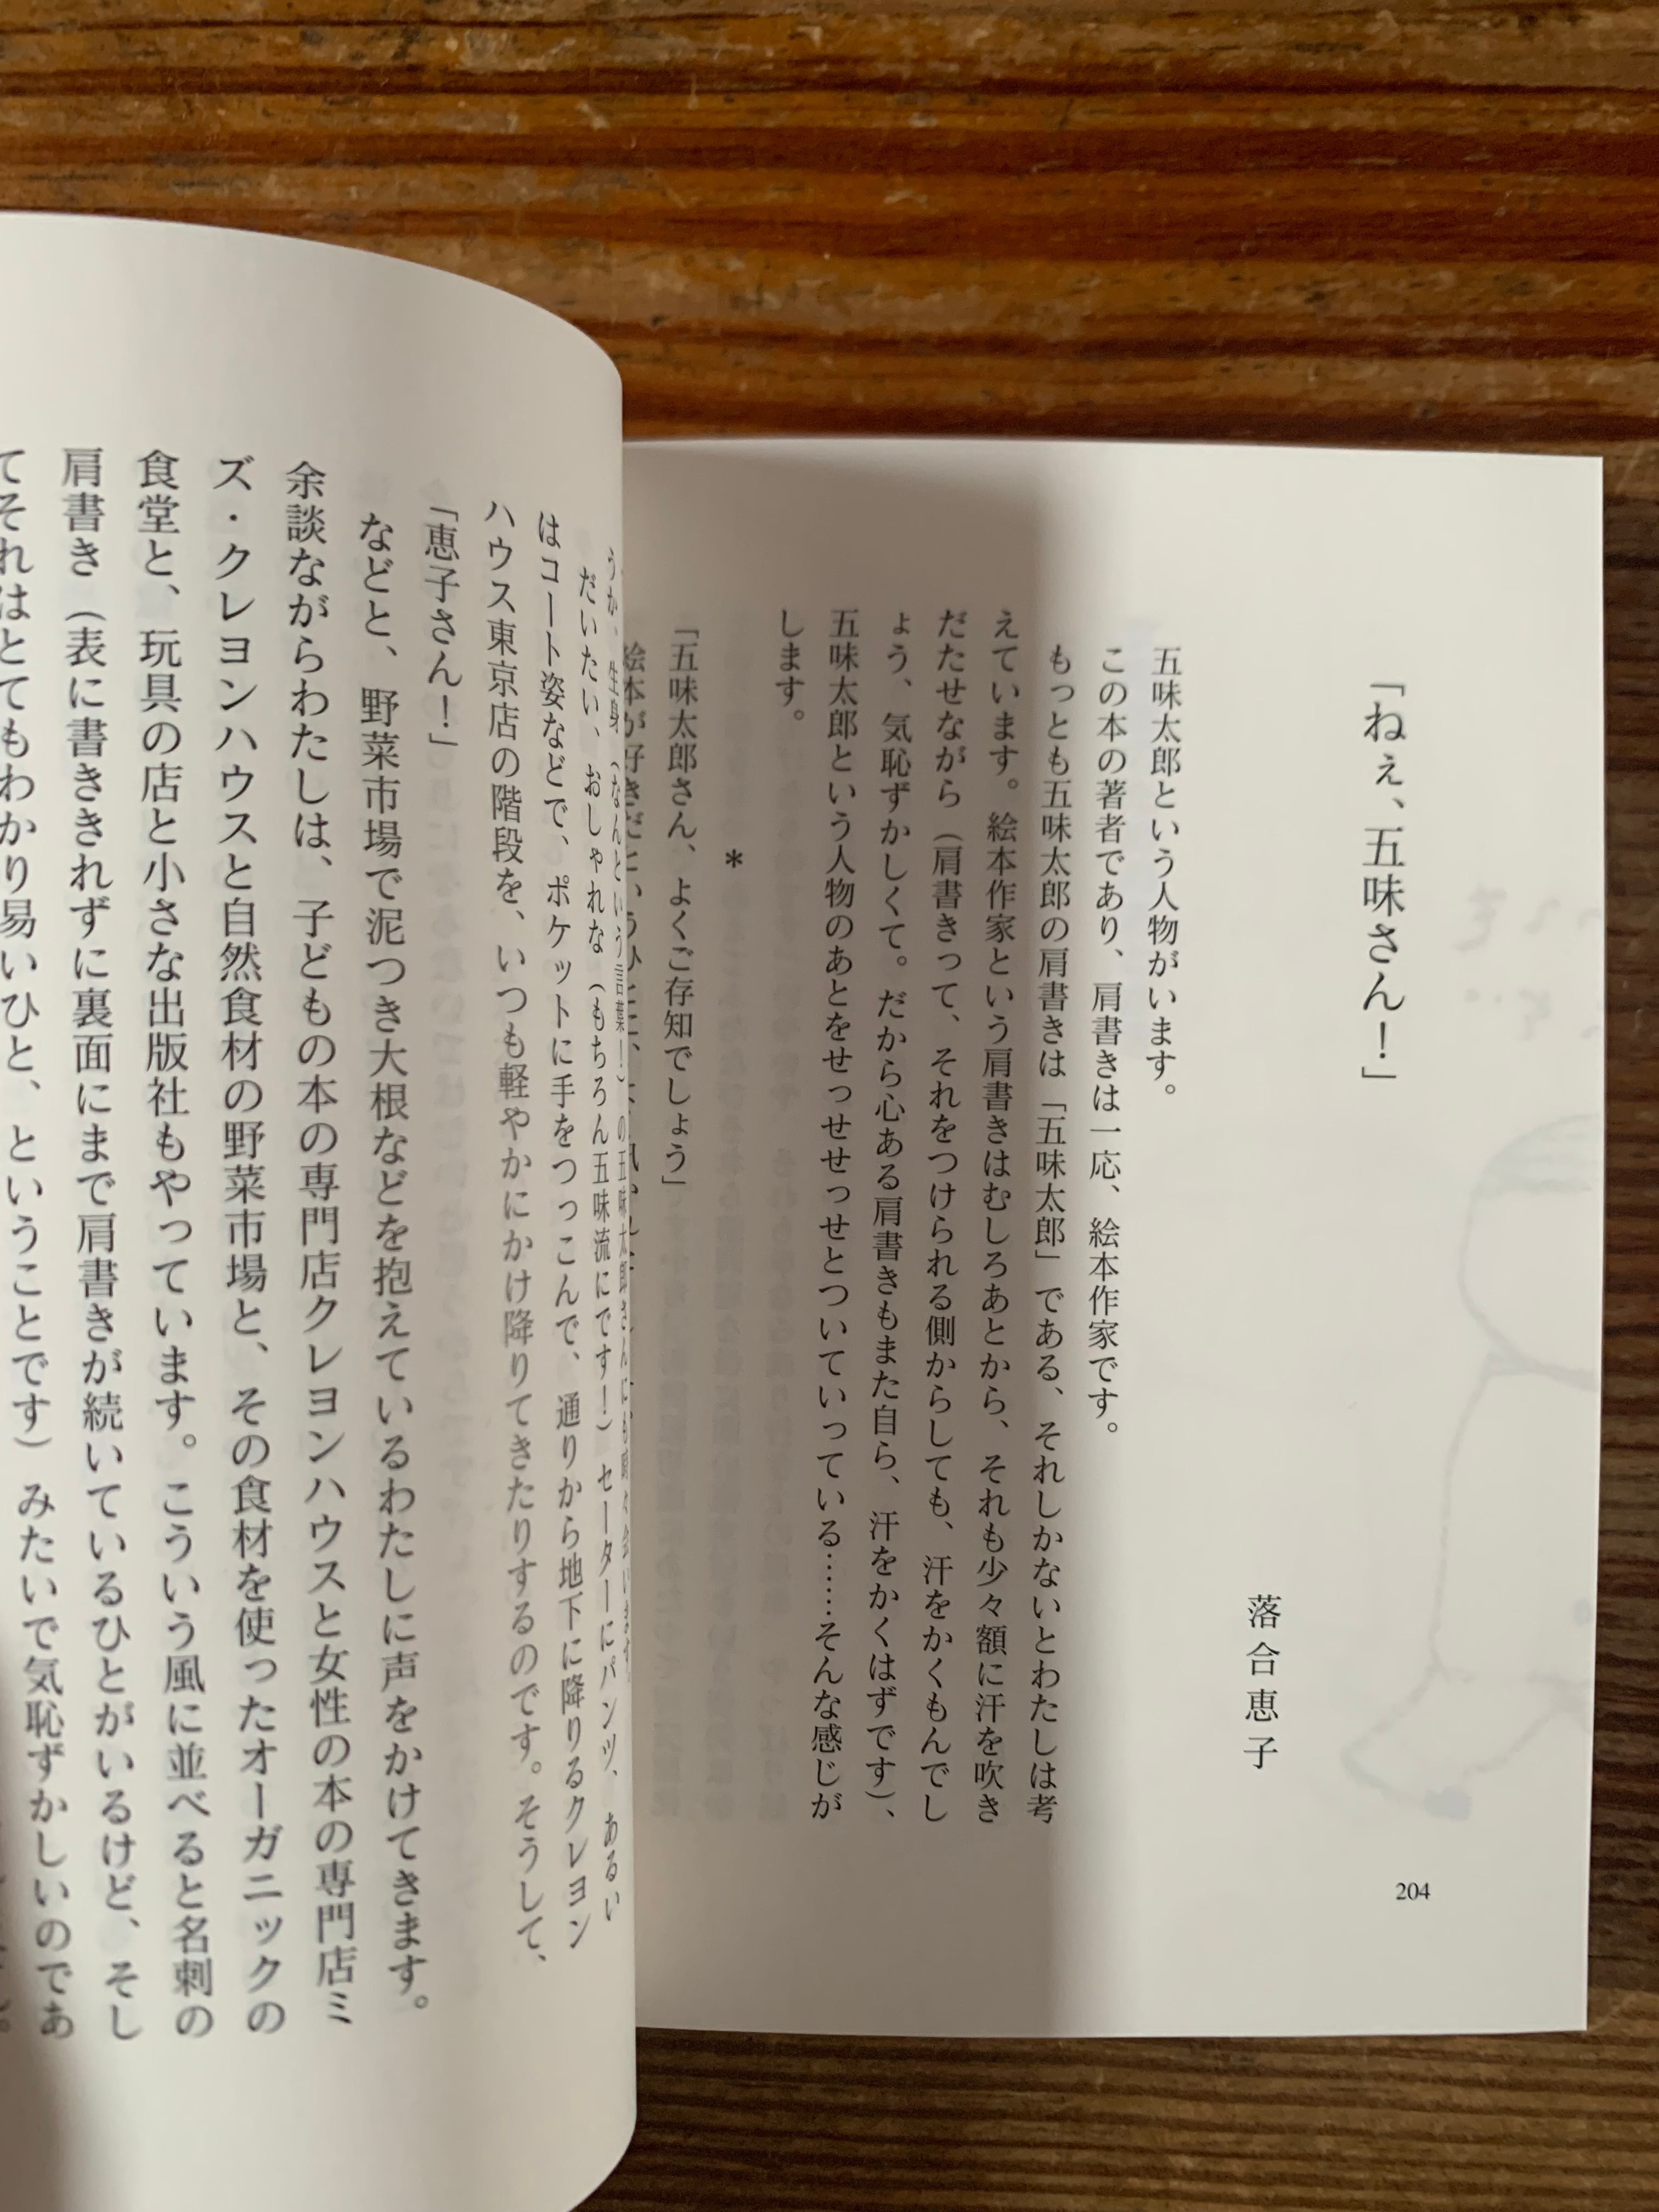 「ねぇ、五味さん！」
落合恵子
五味太郎という人物がいます。
この本の著者であり、肩書きは一応、絵本作家です。
もっとも五味太郎の肩書きは「五味太郎」である、それしかないとわたしは考
えています。絵本作家という肩書きはむしろあとから、それも少々額に汗を吹き
だたせながら（肩書きって、それをつけられる側からしても、汗をかくもんでし
ょう、気恥ずかしくて。だから心ある肩書きもまた自ら、汗をかくはずです）、
五味太郎という人物のあとをせっせせっせとついていっている……そんな感じが
します。
*
「五味太郎さん、よくご存知でしょう」
絵本が好きだというひとに、
204
うか。生身（なんという言葉！）の五味太郎さんにも時々会います。
だいたい、おしゃれな（もちろん五味流にです！）セーターにパンツ、あるい
はコート姿などで、ポケットに手をつっこんで、通りから地下に降りるクレヨン
ハウス東京店の階段を、いつも軽やかにかけ降りてきたりするのです。そうして、
「恵子さん！」
などと、野菜市場で泥つき大根などを抱えているわたしに声をかけてきます。
余談ながらわたしは、子どもの本の専門店クレヨンハウスと女性の本の専門店ミ
ズ・クレヨンハウスと自然食材の野菜市場と、その食材を使ったオーガニックの
食堂と、玩具の店と小さな出版社もやっています。こういう風に並べると名刺の
肩書き（表に書ききれずに裏面にまで肩書きが続いているひとがいるけど、そし
てそれはとてもわかり易いひと、ということです）みたいで気恥ずかしいのであ